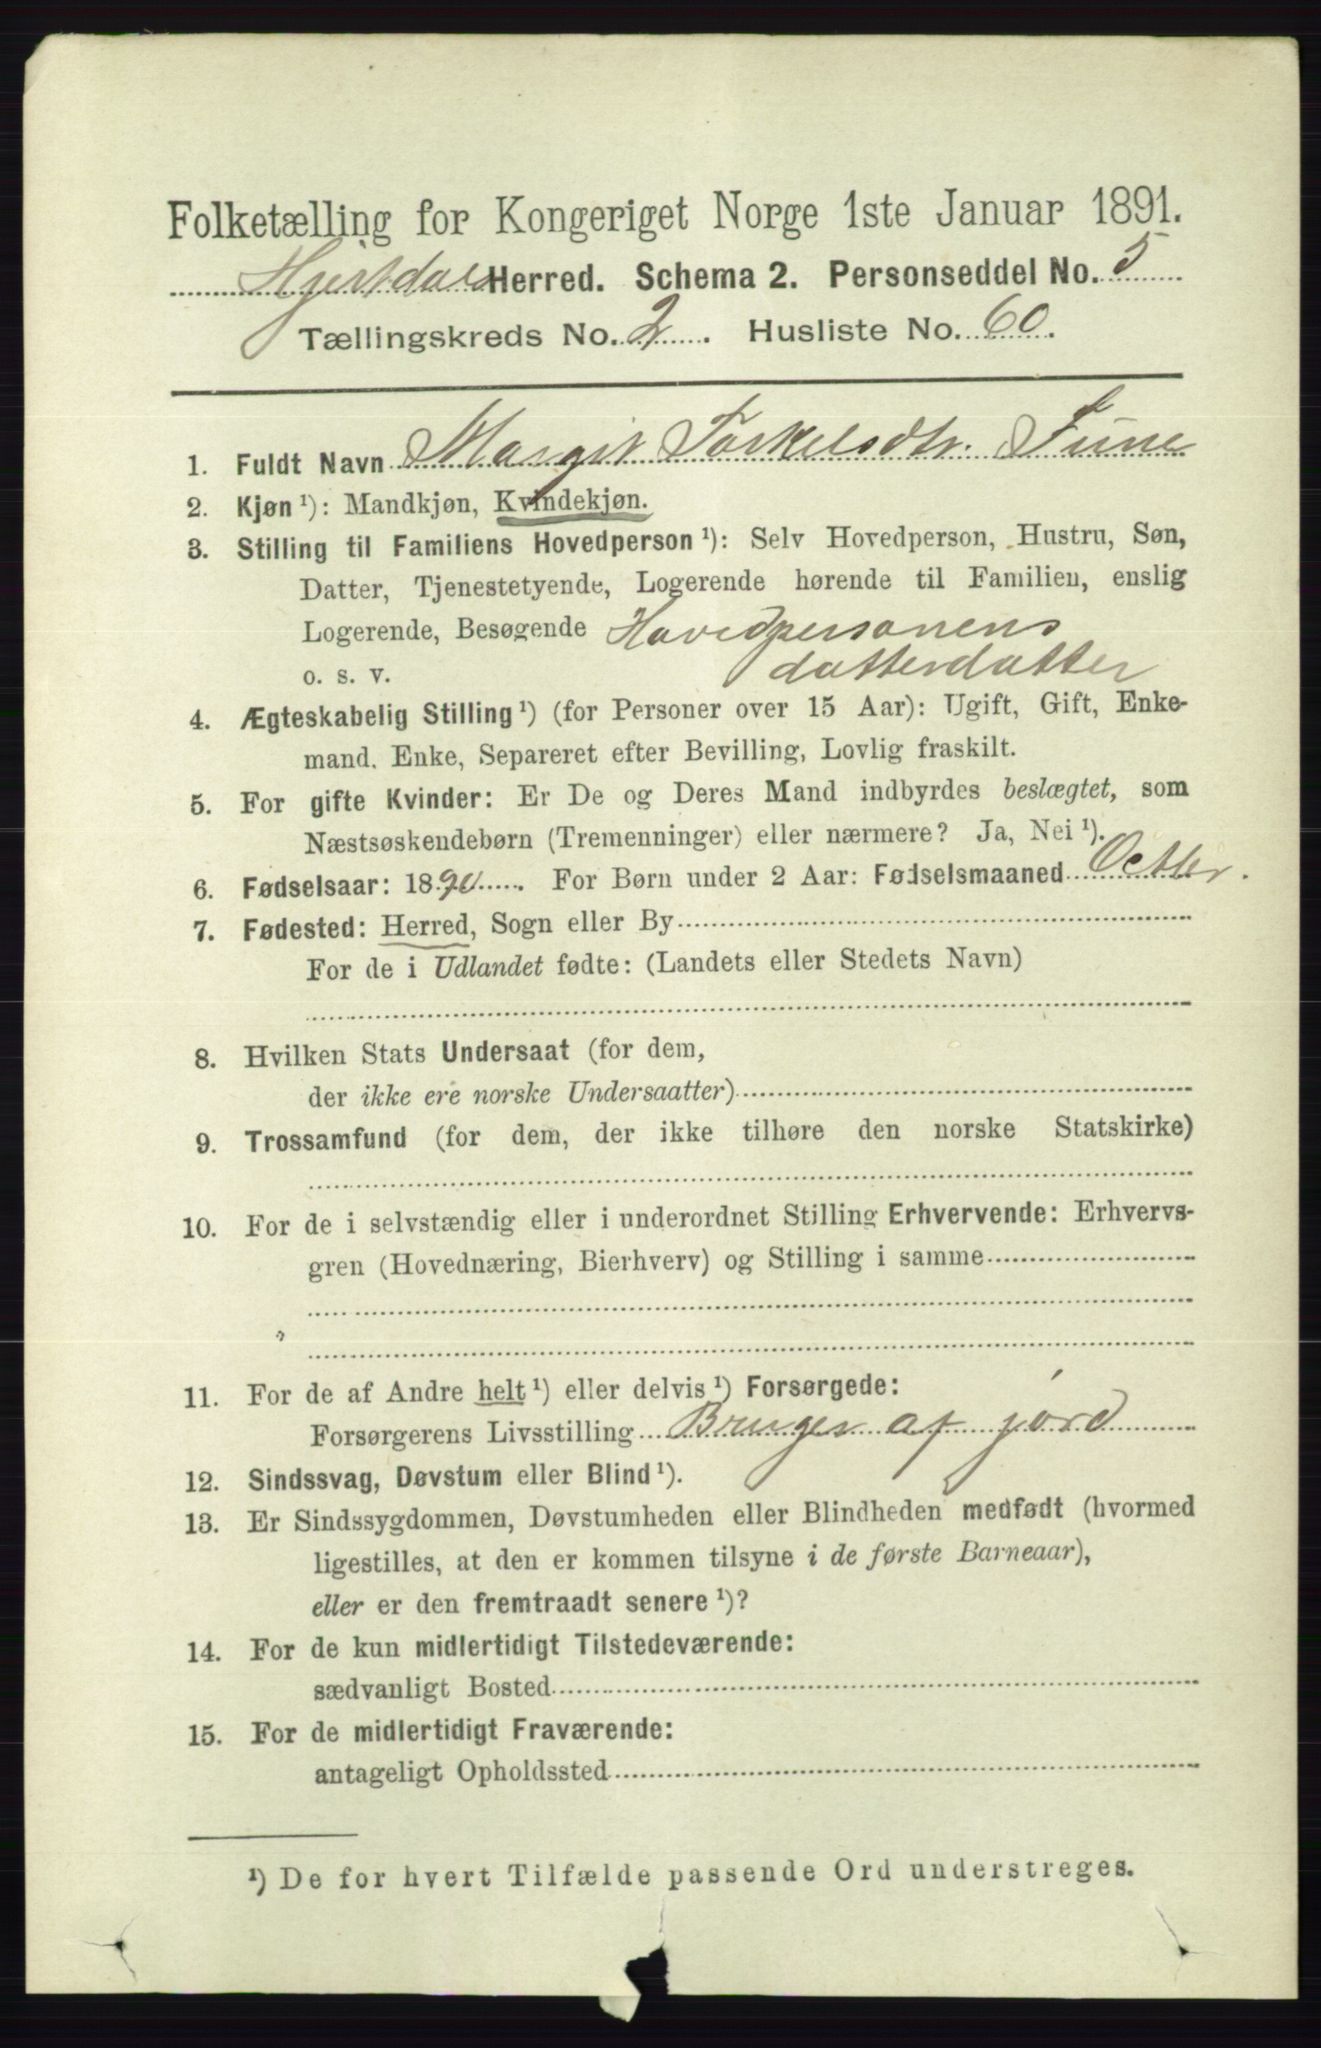 Folketælling for Kongeriget Norge 1ste Januar 1891.
Hjertdals Herred. Schema 2. Personseddel No. 5
Tællingskreds No. 2. Husliste No. 60.
1. Fuldt Navn Margit Torkelsdtr. Tune
2. Kjøn ¹): Mandkjøn, Kvindekjøn.
3. Stilling til Familiens Hovedperson ¹): Selv Hovedperson, Hustru, Søn,
Datter, Tjenestetyende, Logerende hørende til Familien, enslig
Logerende, Besøgende Hovedpersonens
o. s. v. datterdatter
4. Ægteskabelig Stilling ¹) (for Personer over 15 Aar): Ugift, Gift, Enke-
mand. Enke, Separeret efter Bevilling, Lovlig fraskilt.
5. For gifte Kvinder: Er De og Deres Mand indbyrdes beslægtet, som
Næstsøskendebørn (Tremenninger) eller nærmere? Ja, Nei ¹).
6. Fødselsaar: 1890. For Børn under 2 Aar: Fødselsmaaned Octbr.
7. Fødested: Herred, Sogn eller By
For de i Udlandet fødte: (Landets eller Stedets Navn)
8. Hvilken Stats Undersaat (for dem,
der ikke ere norske Undersaatter)
9. Trossamfund (for dem, der ikke tilhøre den norske Statskirke)
10. For de i selvstændig eller i underordnet Stilling Erhvervende: Erhvervs-
gren (Hovednæring, Bierhverv) og Stilling i samme
11. For de af Andre helt ¹) eller delvis ¹) Forsørgede:
Forsørgerens Livsstilling Bruger af jord
12. Sindssvag, Døvstum eller Blind ¹).
13. Er Sindssygdommen, Døvstumheden eller Blindheden medfødt (hvormed
ligestilles, at den er kommen tilsyne i de første Barneaar),
eller er den fremtraadt senere ¹)?
14. For de kun midlertidigt Tilstedeværende:
sædvanligt Bosted
15. For de midlertidigt Fraværende:
antageligt Opholdssted
¹) De for hvert Tilfælde passende Ord understreges.